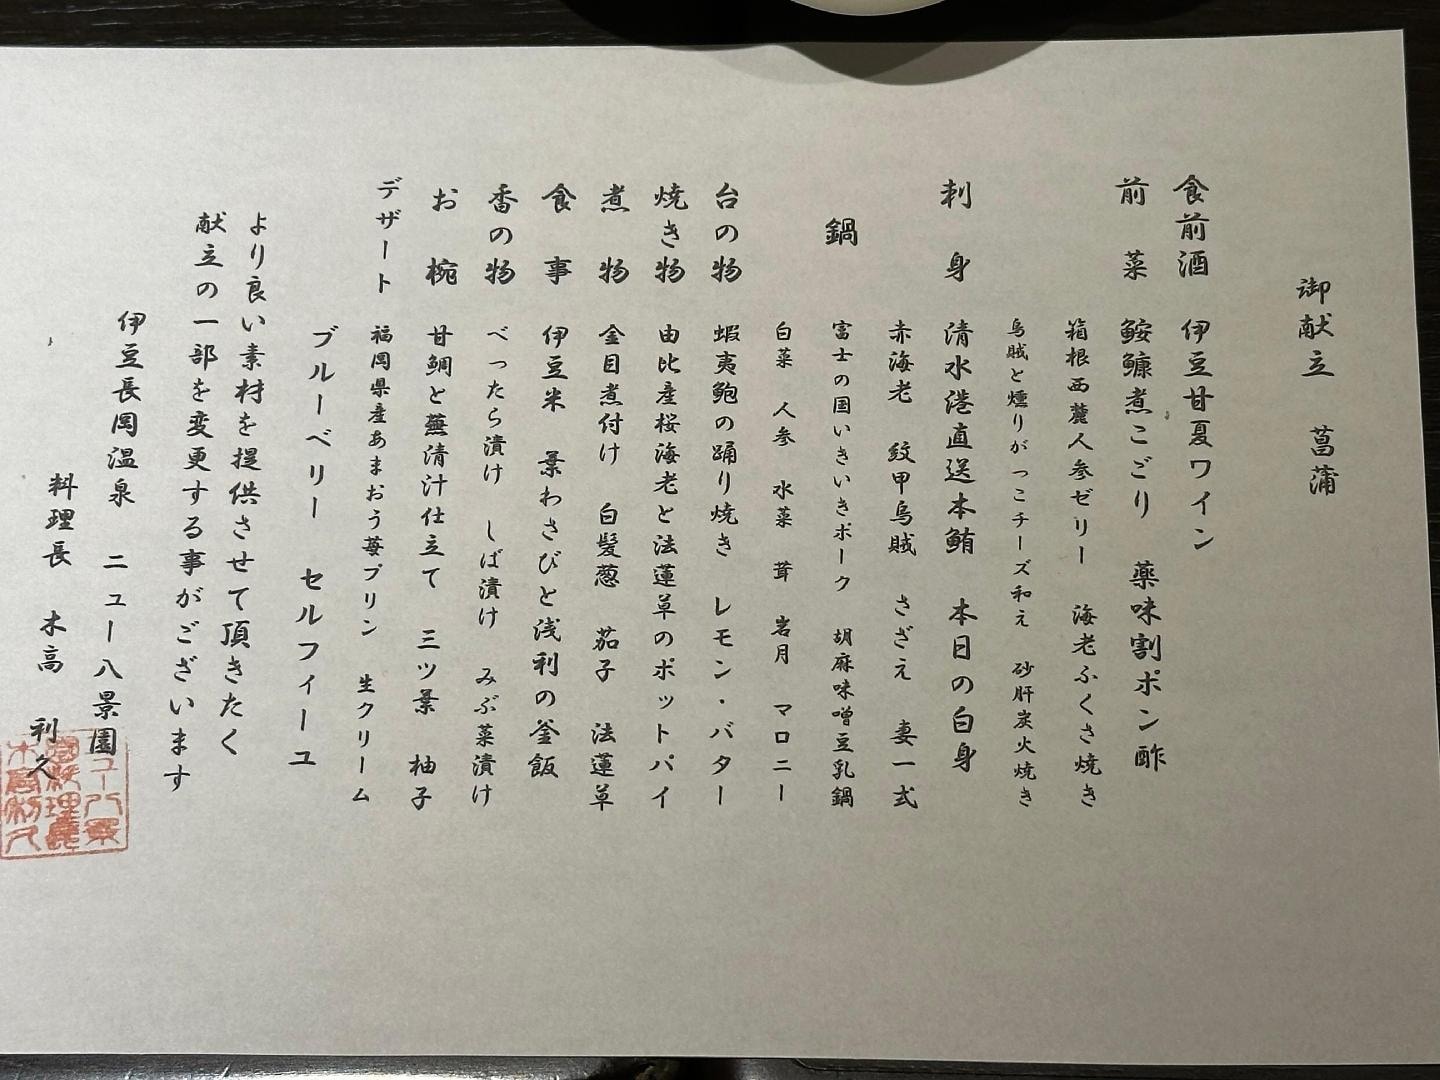 御献立　菖蒲
食前酒　伊豆甘夏ワイン
前　菜　鮟鱇煮こごり　薬味割ポン酢
箱根西麓人参ゼリー　海老ふくさ焼き
烏賊と燻りがっこチーズ和え　砂肝炭火焼き
刺　身　清水港直送本鮪　本日の白身
赤海老　紋甲烏賊　さざえ　妻一式
鍋　富士の国いきいきポーク　胡麻味噌豆乳鍋
白菜　人参　水菜　茸　岩月　マロニー
台の物　蝦夷鮑の踊り焼き　レモン・バター
焼き物　由比産桜海老と法蓮草のポットパイ
煮　物　金目煮付け　白髪葱　茄子　法蓮草
食　事　伊豆米　葉わさびと浅利の釜飯
香の物　べったら漬け　しば漬け　みぶ菜漬け
お　椀　甘鯛と蕪清汁仕立て　三ツ葉　柚子
デザート　福岡県産あまおう苺プリン　生クリーム
ブルーベリー　セルフィーユ
より良い素材を提供させて頂きたく
献立の一部を変更する事がございます
伊豆長岡温泉　ニュー八景園
料理長　木高　利久